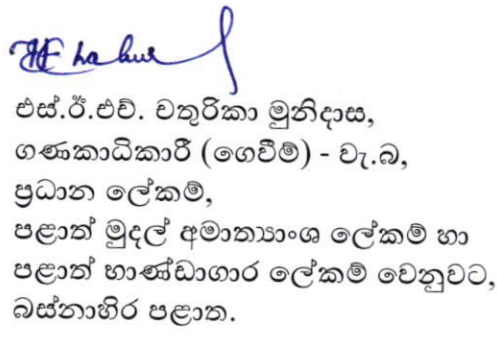 එස්.ඊ.එච්. චතුරිකා මුනිදාස,
ගණකාධිකාරී (ගෙවීම්) - වැ.බ,
ප්‍රධාන ලේකම්,
පළාත් මුදල් අමාත්‍යාංශ ලේකම් හා
පළාත් භාණ්ඩාගාර ලේකම් වෙනුවට,
බස්නාහිර පළාත.